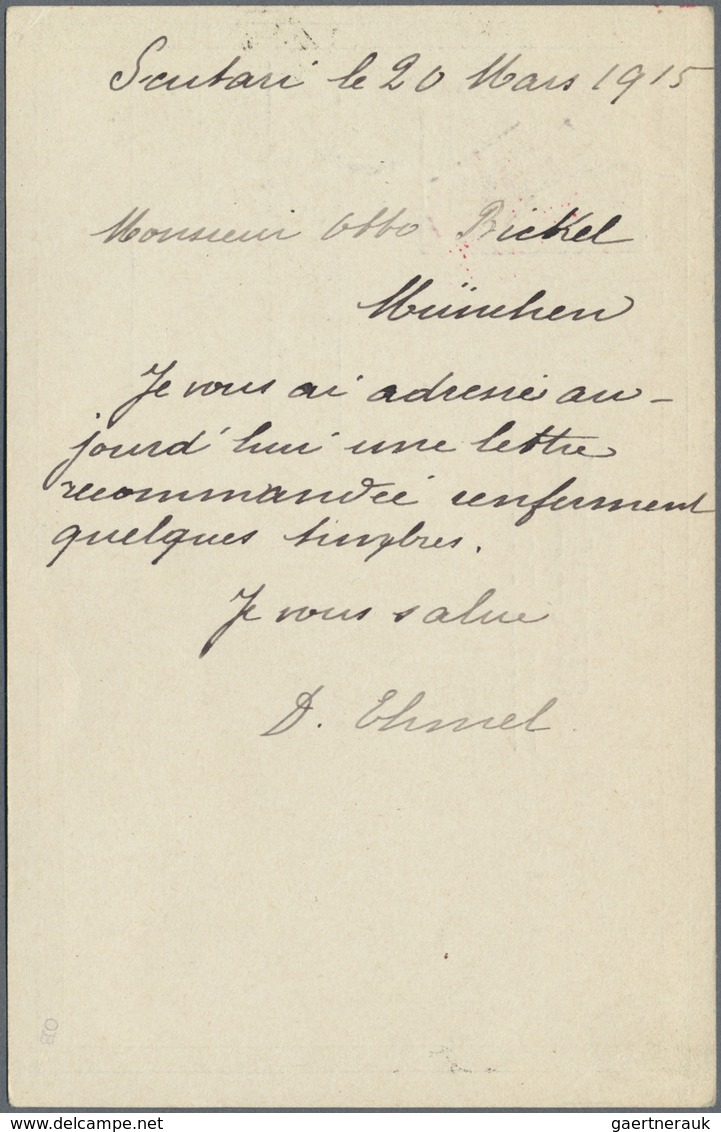 Scutari le 20 Mars 1915
Monsieur Otto Bickel
München
Je vous ai adressé au-
jourd'hui une lettre
recommandée renferment
quelques timbres.
Je vous salue
D. Ehmel
delcampe.net
gaertnerauk